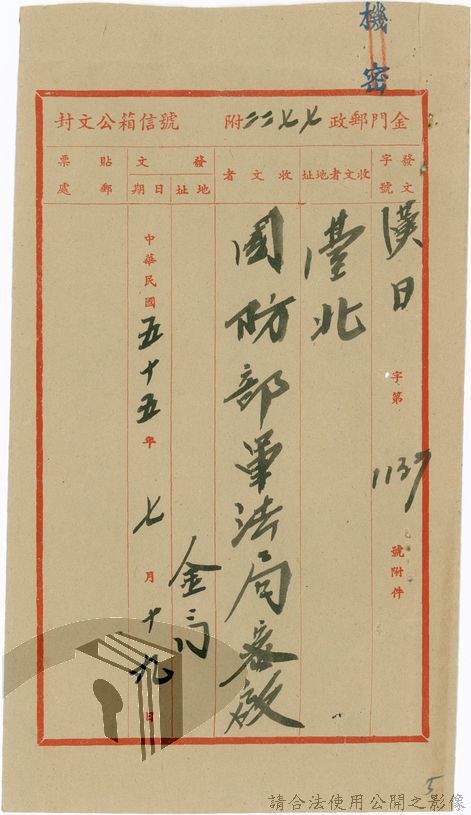 機密
金門郵政七七二二附號信箱公文封
發文字號
漢日字第1137號附件
收文者地址
臺北
收文者
國防部軍法局公啟
發文地址
金門
發文日期
中華民國五十五年七月十九日
貼郵票處
5
請合法使用公開之影像